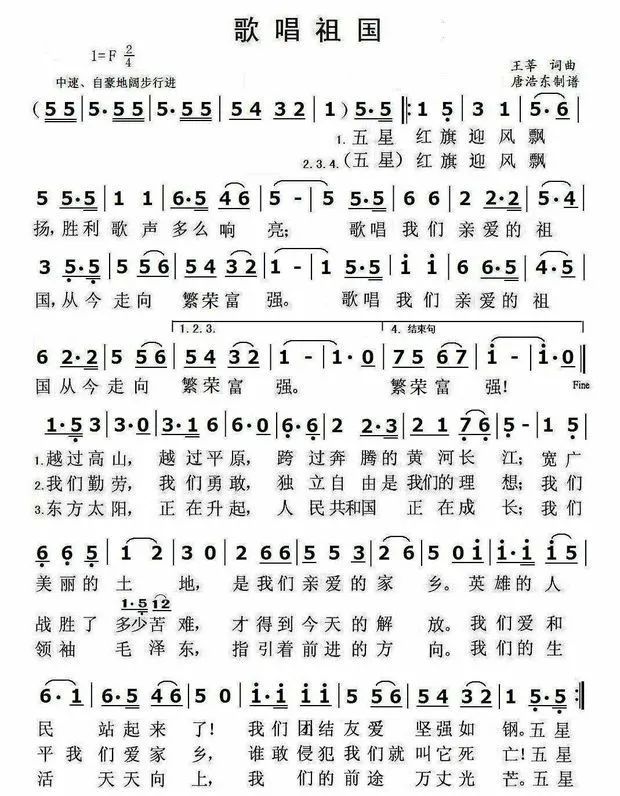 歌唱祖国
1=F 2/4
王莘 词曲
中速、自豪地阔步行进
唐浩东制谱
(5 5 | 5·5 | 5·5 5·5 | 54 32 | 1) 5·5 |: 1 5 | 3 1 | 5·6 |
1. 五星 红旗迎风飘
2.3.4. (五星) 红旗迎风飘
5 5·5 | 1 1 | 6·5 46 | 5 - | 5 5·5 | 6 2 | 2·2 2 | 5·4 |
扬,胜利歌声多么响亮; 歌唱我们亲爱的祖
3 5·5 | 5 56 | 54 32 | 1 - | 1 5·5 | i i | 6 6·5 | 4·5 |
国,从今走向繁荣富强。 歌唱我们亲爱的祖
1. 2. 3. 4. 结束句
6 2·2 | 5 56 | 54 32 | 1 - | 1·0 | 75 67 | i - | i·0 ||
国从今走向繁荣富强。 繁荣富强! Fine
1·5 3 | 3 0 | 3·1 6 | 6 0 | 6· 1 | 2 2·3 | 2 1 76 | 5 - | 1 5 |
1. 越过高山, 越过平原, 跨过奔腾的黄河长江; 宽广
2. 我们勤劳, 我们勇敢, 独立自由是我们的理想; 我们
3. 东方太阳, 正在升起, 人民共和国正在成长; 我们
6 6 5 | 1 2 | 3 0 | 6 6 5 | 5 5 3 | 2 6 | 5 i·i | i·i i 5 |
美丽的土地, 是我们亲爱的家乡。英雄的人
1·5 12
战胜了多少苦难, 才得到今天的解放。我们爱和
领袖毛泽东, 指引着前进的方向。我们的生
6· 1 | 5·5 46 | 5 0 | i·i i i | 5·5 5 5 | 54 32 | 1 5·5 :||
民站起来了! 我们团结友爱坚强如钢。五星
平我们爱家乡, 谁敢侵犯我们就叫它死亡!五星
活天天向上, 我们的前途万丈光芒。五星